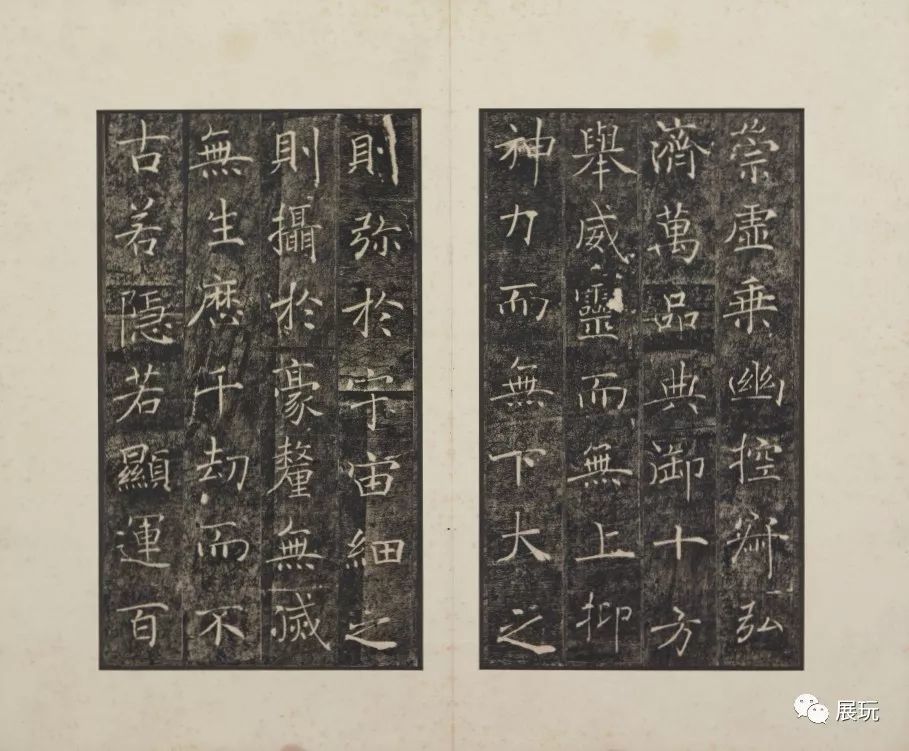 崇虛乗幽控寂弘
濟萬品典御十方
舉威靈而無上抑
神力而無下大之
則弥於宇宙細之
則攝於豪釐無滅
無生歴千劫而不
古若隱若顯運百
展玩